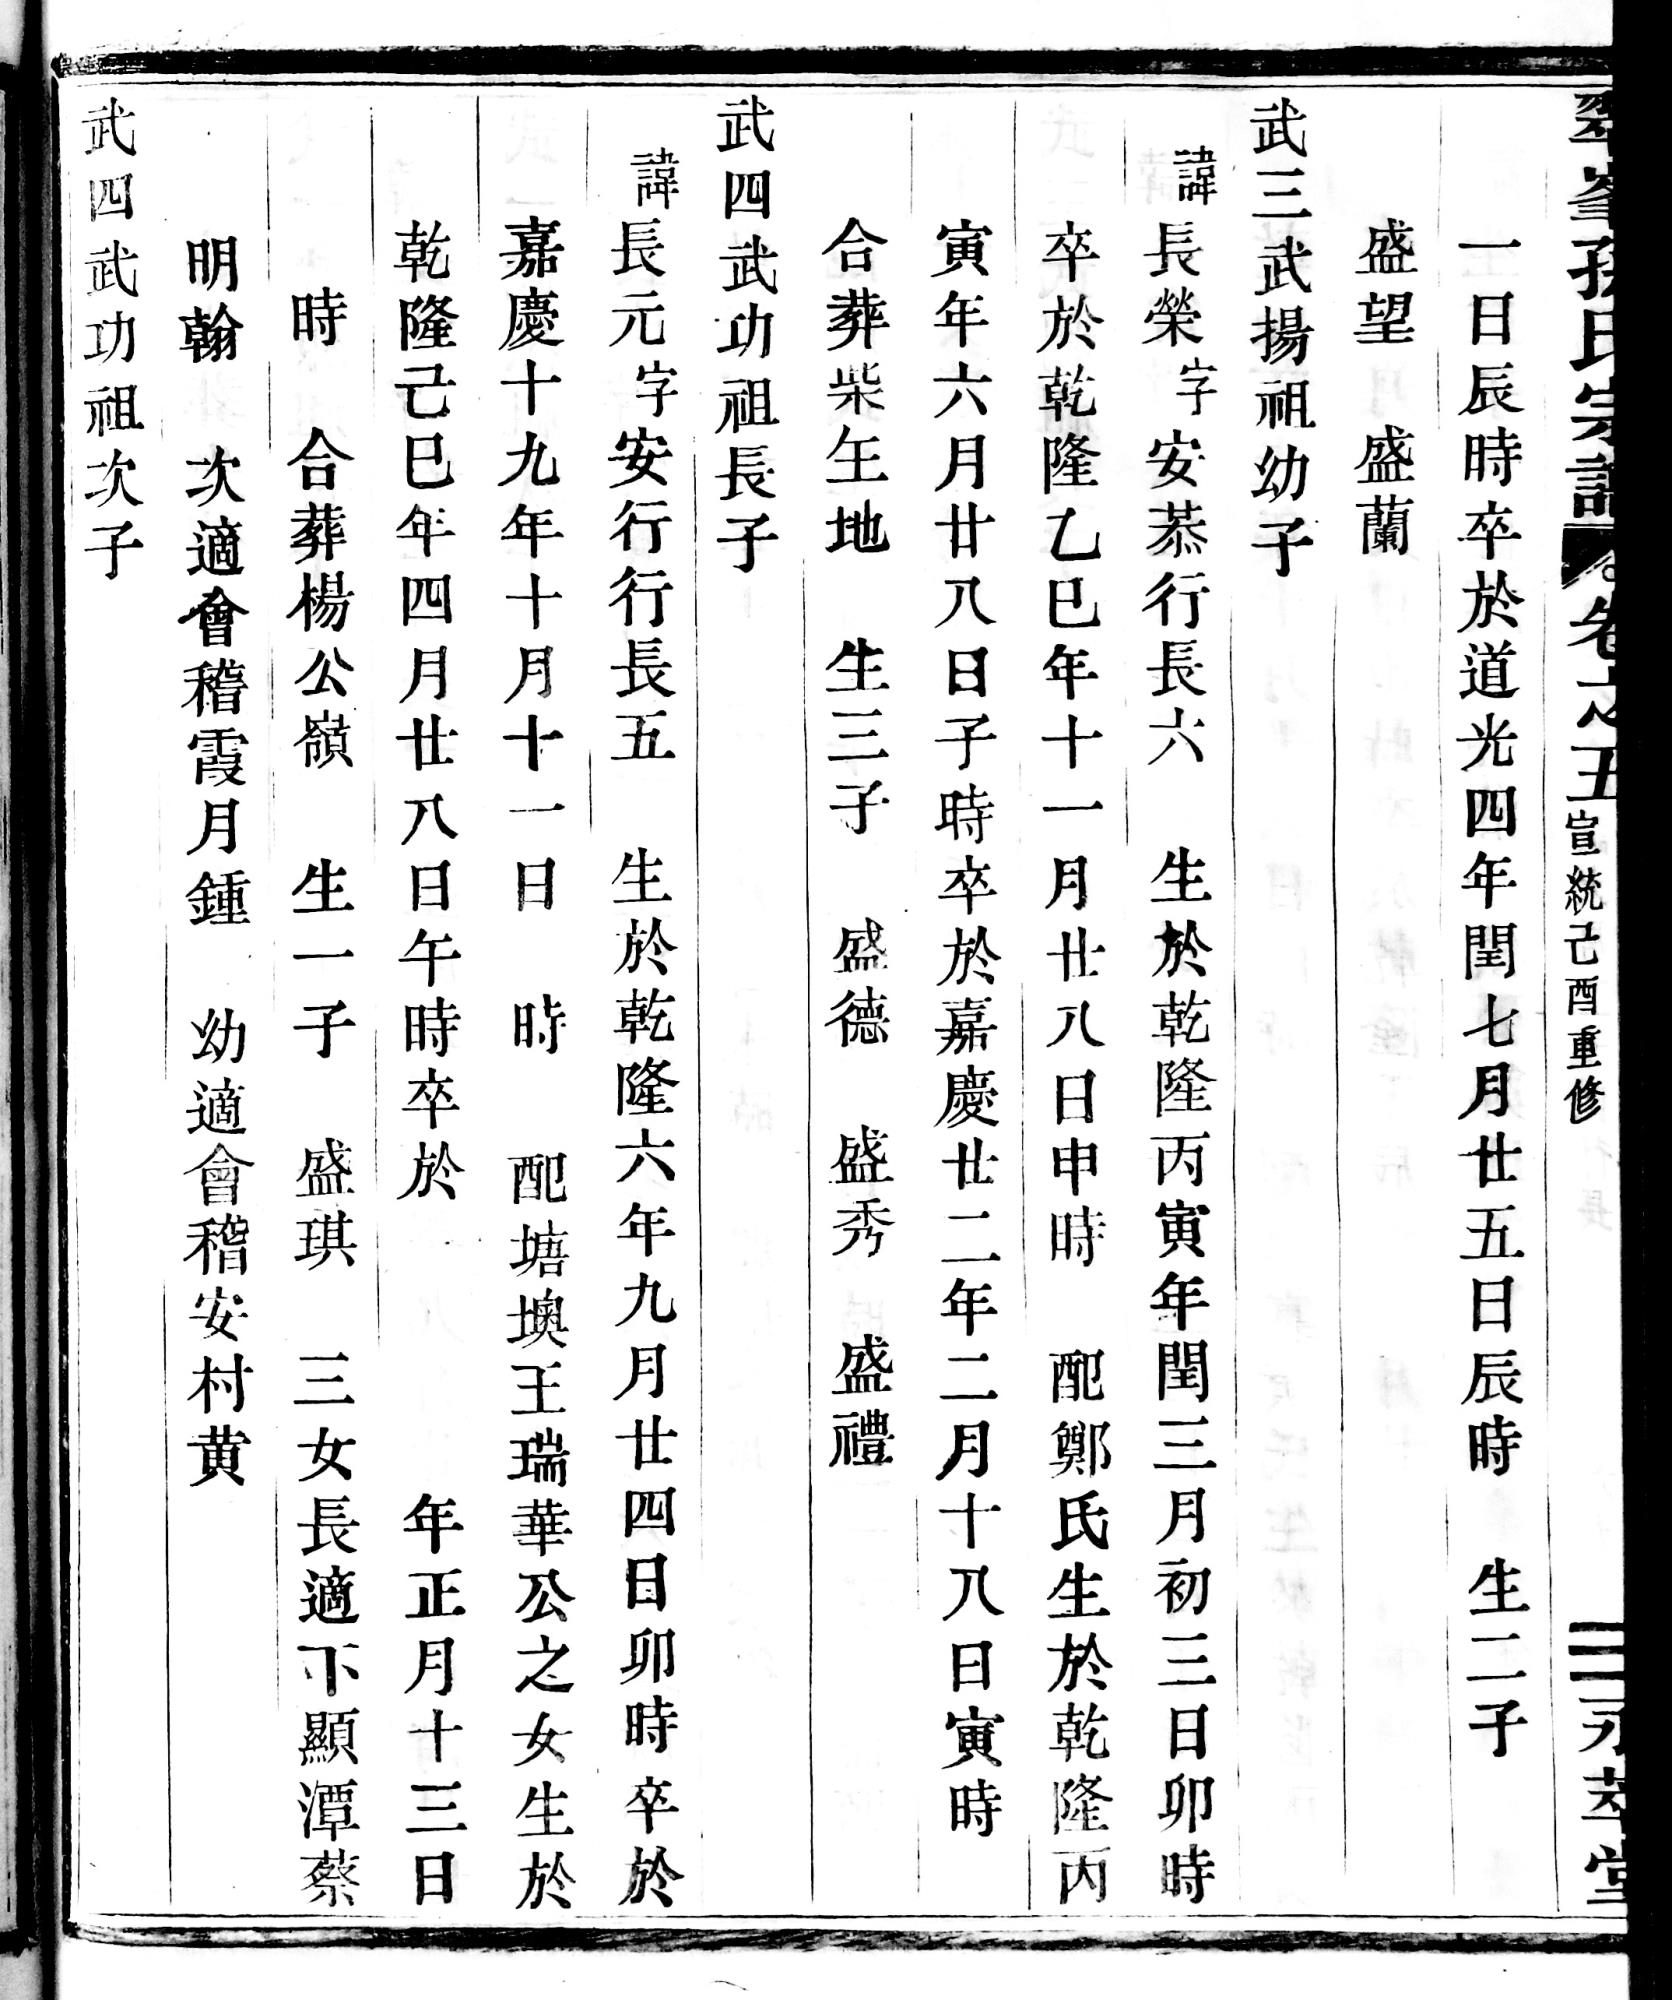 翠峯孫氏宗譜 卷之五 宣統己酉重修 三 永萃堂
一日辰時卒於道光四年閏七月廿五日辰時 生二子
盛望 盛蘭
武三武揚祖幼子
諱長榮字安恭行長六 生於乾隆丙寅年閏三月初三日卯時
卒於乾隆乙巳年十一月廿八日申時 配鄭氏生於乾隆丙
寅年六月廿八日子時卒於嘉慶廿二年二月十八日寅時
合葬柴𡈼地 生三子 盛德 盛秀 盛禮
武四武功祖長子
諱長元字安行行長五 生於乾隆六年九月廿四日卯時卒於
嘉慶十九年十月十一日 時 配塘墺王瑞華公之女生於
乾隆己巳年四月廿八日午時卒於 年正月十三日
時 合葬楊公嶺 生一子 盛琪 三女長適下顯潭蔡
明翰 次適會稽霞月鍾 幼適會稽安村黄
武四武功祖次子